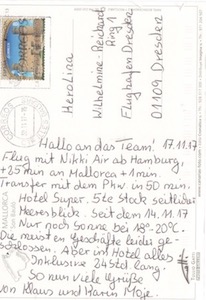 HeroLina
Wilhelmine-Reichard
Ring 1
Flughafen Dresden
01109 Dresden
Hallo an das Team! 17.11.17
Flug mit Nikki Air ab Hamburg,
+25 min an Mallorca +1 min.
Transfer mit dem Pkw in 50 min.
Hotel Super. 5te Stock seitlicher
Meeresblick. Seit dem 14.11.17
Nur noch Sonne bei 18°-20°C.
Die meisten Geschäfte leider ge-
schlossen. Aber im Hotel alles
Inklusive 24 Std lang.
So nun viele Grüße
von Klaus und Karin Moje.